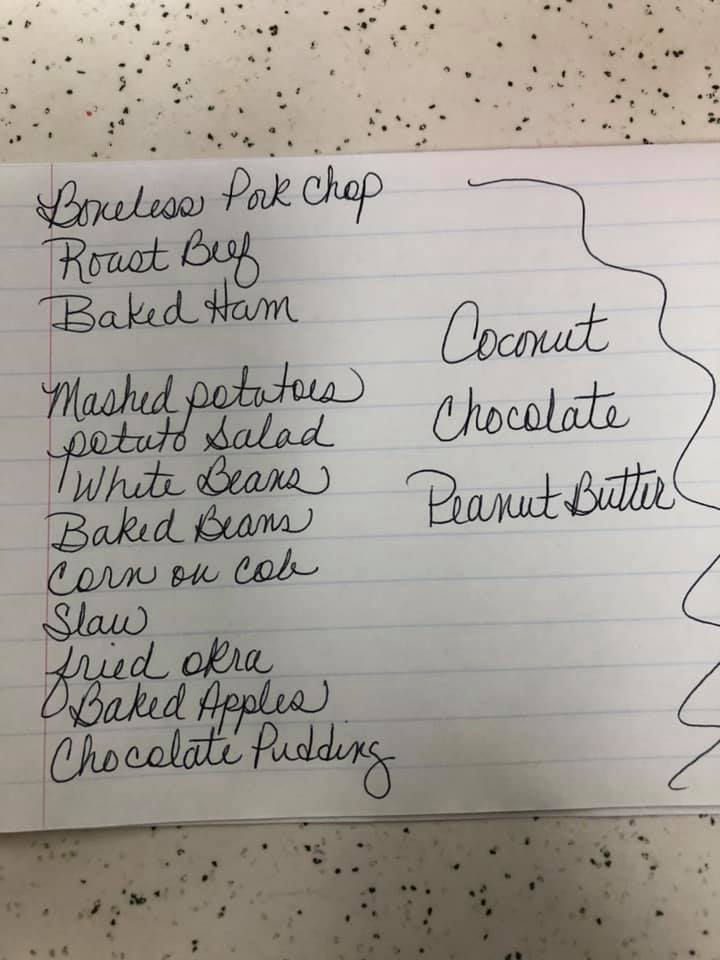 Boneless Pork Chop
Roast Beef
Baked Ham
Mashed potatoes
potato salad
White Beans
Baked Beans
Corn on cob
Slaw
fried okra
Baked Apples
Chocolate Pudding
Coconut
Chocolate
Peanut Butter